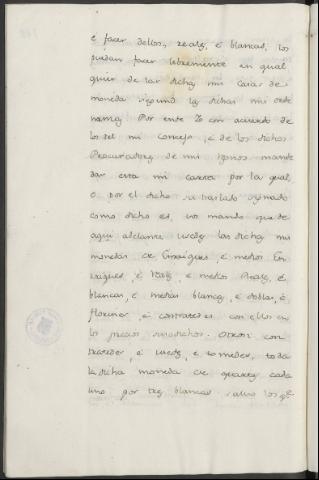 e facer dellos, reales, é blancas, los
puedan facer libremente en qual
quier de las dichas mis casas de
moneda segund las dichas mis orde
nanzas: Por ende Yo con acuerdo de
los del mi Consejo, é de los dichos
Procuradores de mis regnos mande
dar esta mi carta por la qual,
o por el dicho su traslado signado
como dicho es, vos mando que de
aqui adelante usedes las dichas mis
monedas de Enriques, é medios En
riques, é Reales, é medios Reales, é
blancas, é medias blancas, é doblas, é
florines, é contratedes con ellos en
los precios susodichos. Otrosi con
tratedes, é usedes, e tomedes, toda
la dicha moneda de quartos cada
uno por tres blancas, salvo los qe